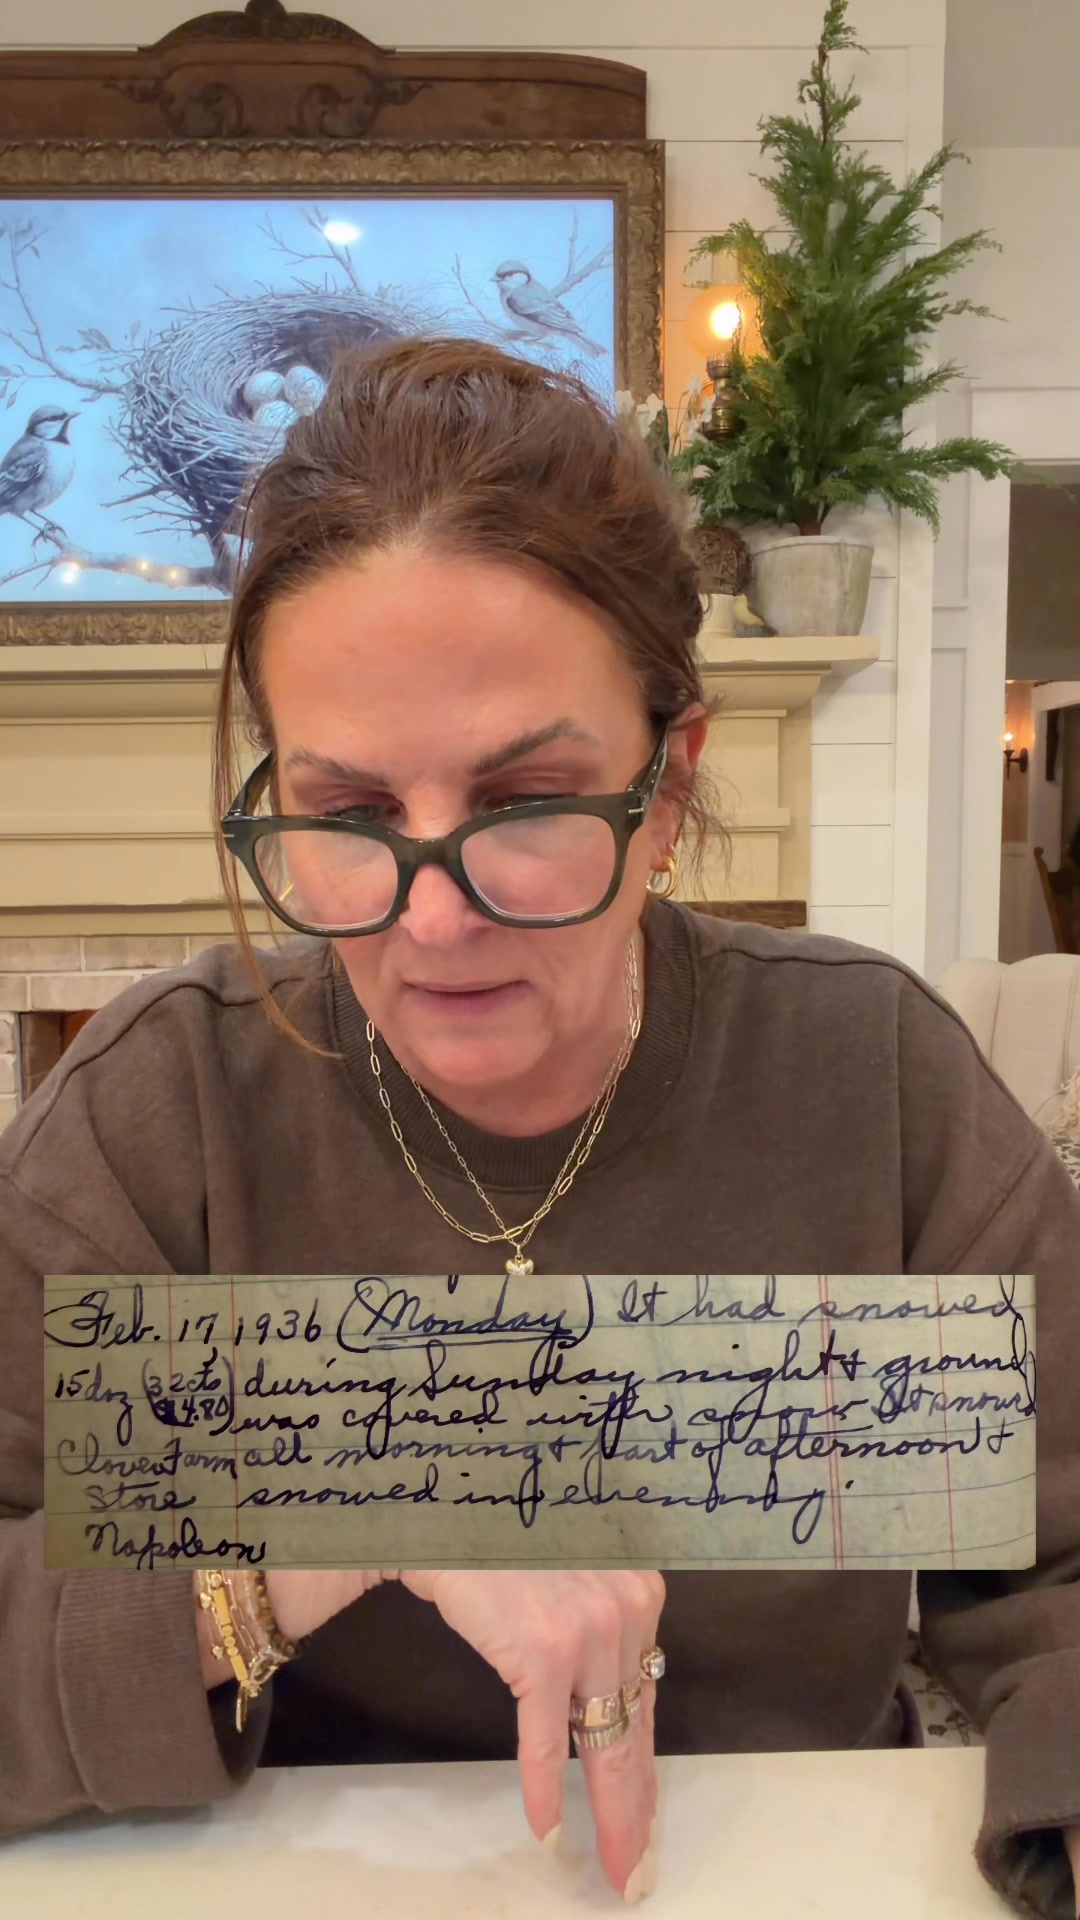 Feb. 17, 1936 (Monday) It had snowed
15 doz (32cts during Sunday night & ground
$4.80) was covered with snow. It snowed
Clover Farm all morning & part of afternoon &
Store snowed in evening.
Napoleon